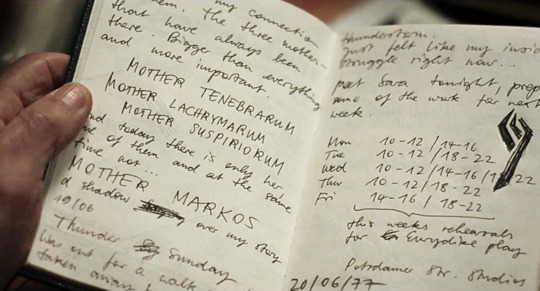 my connection
them. The three mothers
that have always been
there. Bigger than everything
and more important.
MOTHER TENEBRARUM
MOTHER LACHRYMARUM
MOTHER SUSPIRIORUM
and today there is only her
one of them and at the same
time not...
MOTHER MARKOS
a shadow over my story
19/06
Thunder Sunday
Was out for a walk
taken away
thunderstorm.
Just felt like my inside
struggle right now...
meet Sara tonight, prep
some of the work for next
week.
Mon 10-12/14-16
Tue 10-12/18-22
Wed 10-12/14-16/18-22
Thur 10-12/18-22
Fri 14-16/18-22
this weeks rehearsals
for Eurydike play
Potsdamer Str. Studios
20/06/77